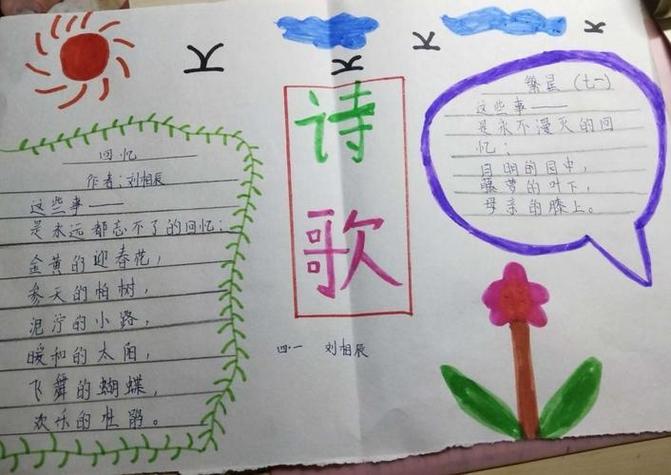 回忆
作者:刘相辰
这些事——
是永远都忘不了的回忆:
金黄的迎春花,
参天的柏树,
泥泞的小路,
暖和的太阳,
飞舞的蝴蝶,
欢乐的
诗
歌
四·一 刘相辰
繁星(七一)
这些事——
是永不漫灭的回
忆:
月明的园中,
藤萝的叶下,
母亲的膝上。